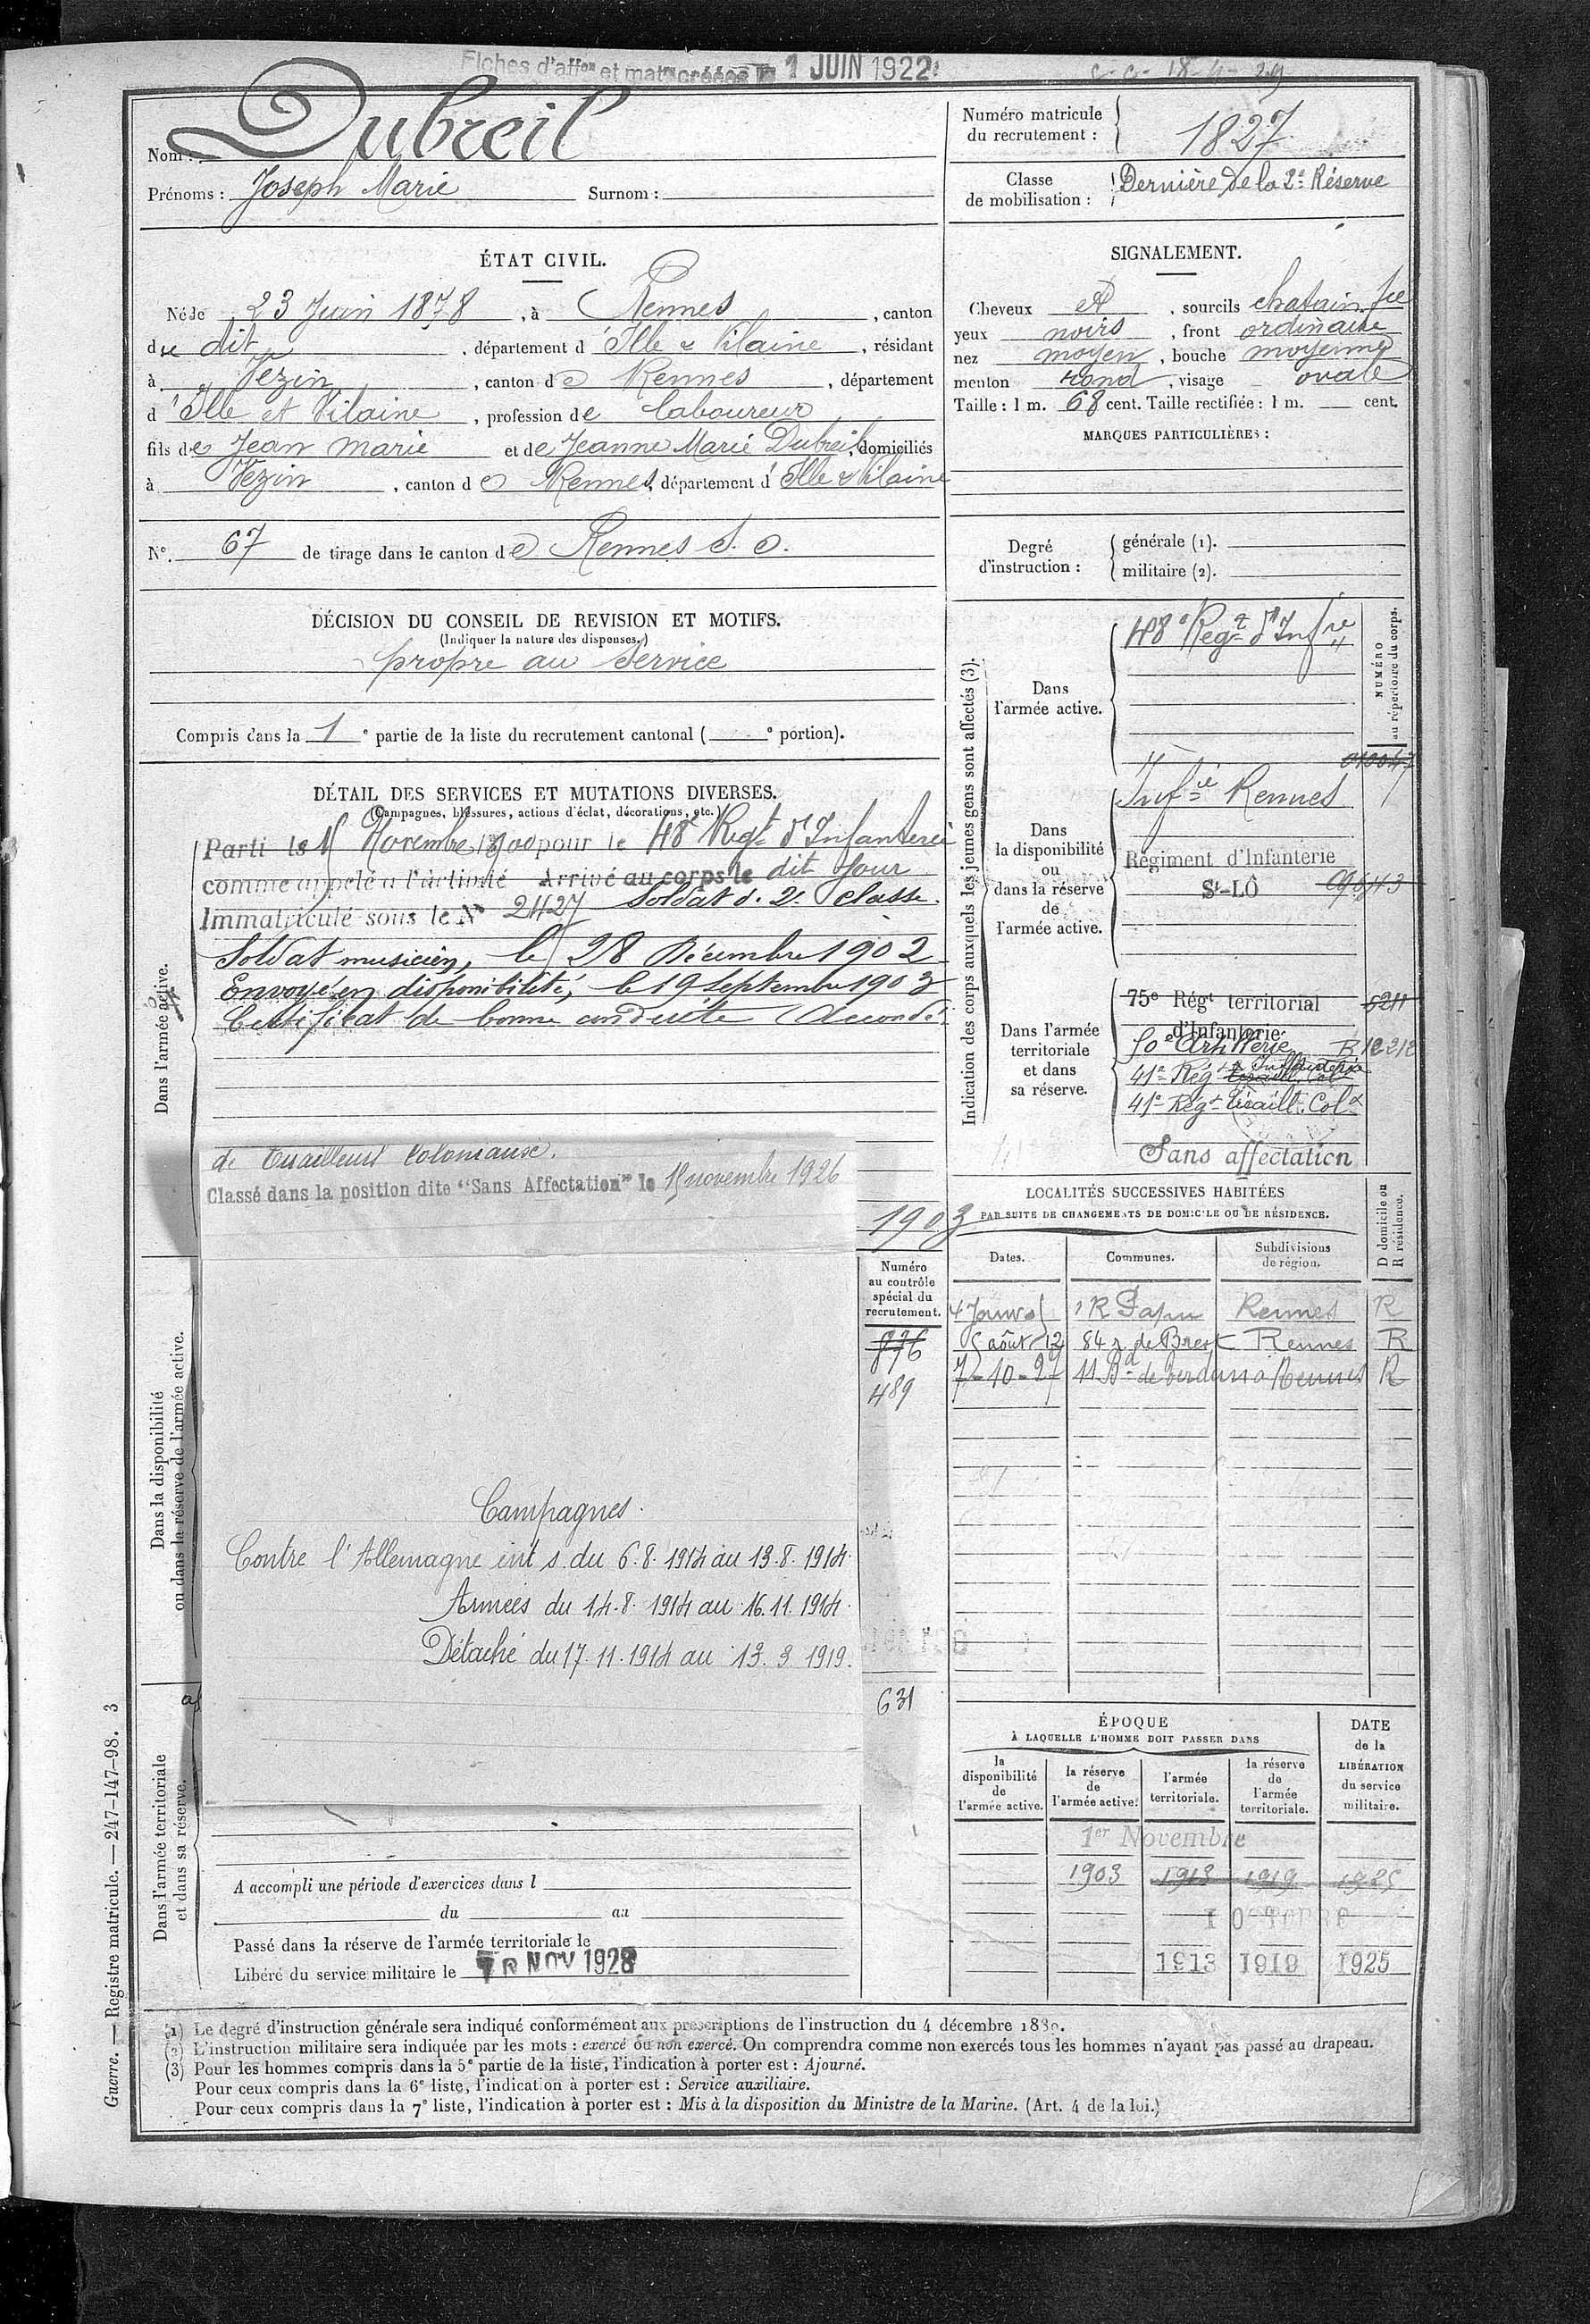 Fiches d'affon et matle créées le 1 JUIN 1922
c.c. 18-4-29
Nom : Dubreil
Prénoms : Joseph Marie Surnom :
Numéro matricule du recrutement : 1827
Classe de mobilisation : Dernière de la 2e Réserve
ÉTAT CIVIL.
Né le 23 Juin 1878, à Rennes, canton
du dit, département d'Ille & Vilaine, résidant
à Vezin, canton de Rennes, département
d'Ille et Vilaine, profession de laboureur
fils de Jean Marie et de Jeanne Marie Dubreil, domiciliés
à Vezin, canton de Rennes, département d'Ille & Vilaine
N° 67 de tirage dans le canton de Rennes S. O.
SIGNALEMENT.
Cheveux et, sourcils chatain fcé
yeux noirs, front ordinaire
nez moyen, bouche moyenne
menton rond, visage ovale
Taille : 1 m. 68 cent. Taille rectifiée : 1 m. — cent.
MARQUES PARTICULIÈRES :
Degré d'instruction : générale (1).
militaire (2).
DÉCISION DU CONSEIL DE REVISION ET MOTIFS.
(Indiquer la nature des dispenses.)
propre au service
Compris dans la 1e partie de la liste du recrutement cantonal ( e portion).
DÉTAIL DES SERVICES ET MUTATIONS DIVERSES.
(Campagnes, blessures, actions d'éclat, décorations, etc.)
Dans l'armée active.
Parti le 15 Novembre 1900 pour le 48e Regt d'Infanterie
comme appelé à l'activité Arrivé au corps le dit jour
Immatriculé sous le No 2427 Soldat d. 2e classe.
Soldat musicien, le 28 Décembre 1902
Envoyé en disponibilité, le 19 Septembre 1903
Certificat de bonne conduite Accordé.
de Tirailleurs Coloniaux.
Classé dans la position dite "Sans Affectation" le 15 novembre 1926
1903
Dans la disponibilité ou dans la réserve de l'armée active.
Numéro au contrôle spécial du recrutement.
876
489
Campagnes.
Contre l'Allemagne int s. du 6.8.1914 au 13.8.1914.
Armées du 14.8.1914 au 16.11.1914.
Détaché du 17.11.1914 au 13.3.1919.
631
Dans l'armée territoriale et dans sa réserve.
A accompli une période d'exercices dans l
du au
Passé dans la réserve de l'armée territoriale le
Libéré du service militaire le NOV 1928
Indication des corps auxquels les jeunes gens sont affectés (3).
NUMÉRO au répertoire du corps.
Dans l'armée active.
48e Regt d'Infre
Dans la disponibilité ou dans la réserve de l'armée active.
Infie Rennes
Régiment d'Infanterie
St-LÔ
Dans l'armée territoriale et dans sa réserve.
75e Régt territorial 5211
d'Infanterie
50e Artillerie R 12212
41e Régt Tiraill. Col. Infanterie
41e Régt Tiraill. Colx
Sans affectation
LOCALITÉS SUCCESSIVES HABITÉES
PAR SUITE DE CHANGEMENTS DE DOMICILE OU DE RÉSIDENCE.
Dates. Communes. Subdivisions de région. D domicile ou R résidence.
1 R Papu Rennes R
5 août 12 84 r. de Brest Rennes R
7-10-29 11 Bd de Verdun à Rennes R
ÉPOQUE
À LAQUELLE L'HOMME DOIT PASSER DANS
la disponibilité de l'armée active.
la réserve de l'armée active.
l'armée territoriale.
la réserve de l'armée territoriale.
DATE de la LIBÉRATION du service militaire.
1er Novembre
1903 1913 1919 1925
1 OCTOBRE
1913 1919 1925
(1) Le degré d'instruction générale sera indiqué conformément aux prescriptions de l'instruction du 4 décembre 1889.
(2) L'instruction militaire sera indiquée par les mots : exercé ou non exercé. On comprendra comme non exercés tous les hommes n'ayant pas passé au drapeau.
(3) Pour les hommes compris dans la 5e partie de la liste, l'indication à porter est : Ajourné.
Pour ceux compris dans la 6e liste, l'indication à porter est : Service auxiliaire.
Pour ceux compris dans la 7e liste, l'indication à porter est : Mis à la disposition du Ministre de la Marine. (Art. 4 de la loi.)
Guerre. — Registre matricule. — 247-147-98. 3